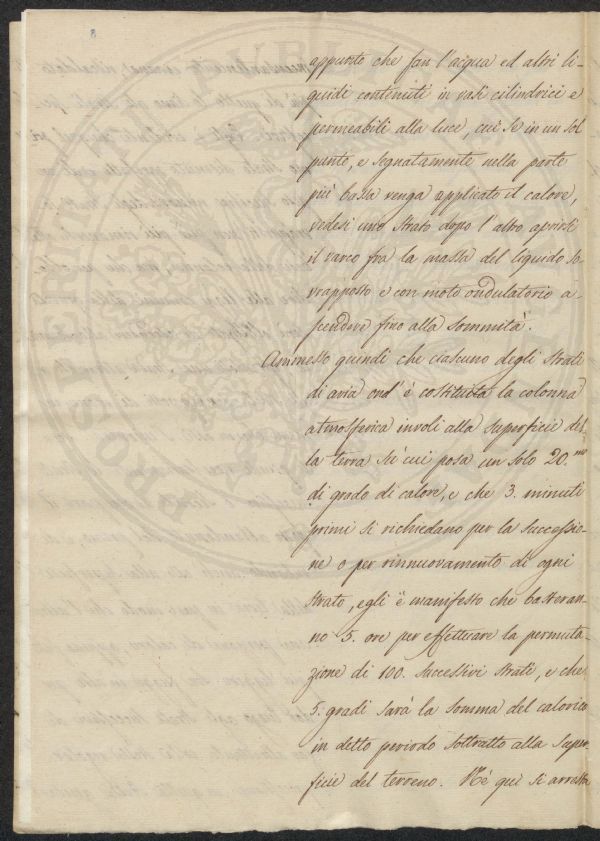 8
appunto che fan l'acqua ed altri li-
quidi contenuti in vasi cilindrici e
permeabili alla luce, cui se in un sol
punto, e segnatamente nella parte
più bassa venga applicato il calore,
vedesi uno strato dopo l'altro aprirsi
il varco fra la massa del liquido so
vrapposto e con moto ondulatorio a-
scendere fino alla sommità.
Ammesso quindi che ciascuno degli strati
di aria ond' è costituita la colonna
atmosferica involi alla superficie del
la terra su cui posa un solo 20.mo
di grado di calore, e che 3. minuti
primi si richiedano per la successio-
ne o per rinnuovamento di ogni
strato, egli è manifesto che basteran-
no 5. ore per effettuare la permuta-
zione di 100. successivi strati, e che
5. gradi sarà la somma del calorico
in detto periodo sottratto alla super
ficie del terreno. Nè qui si arresta